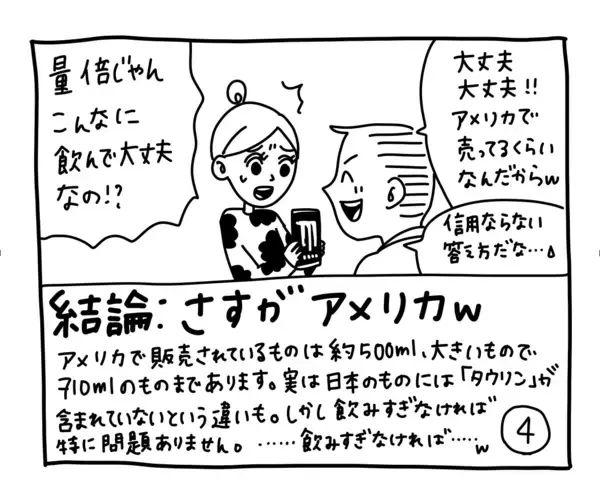 量倍じゃん
こんなに
飲んで大丈夫
なの!?
大丈夫
大丈夫!!
アメリカで
売ってるくらい
なんだからw
信用ならない
答え方だな…。
結論:さすがアメリカw
アメリカで販売されているものは約500ml、大きいもので
710mlのものまであります。実は日本のものには「タウリン」が
含まれていないという違いも。しかし飲みすぎなければ
特に問題ありません。……飲みすぎなければ……w
4